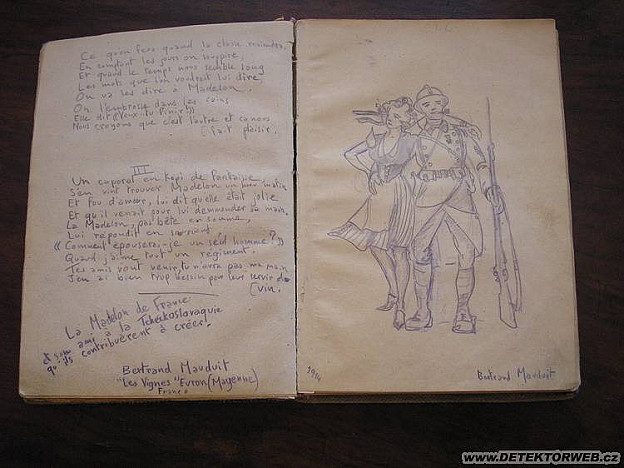 Ce qu'on fera quand la classe reviendra.
En comptant les jours on soupire,
Et quand le temps nous semble long
Les mots que l'on voudrait lui dire,
On va les dire à Madelon.
On l'embrasse dans les coins
Elle dit "Veux-tu finir"
Nous croyons que c'est l'autre et ça nous
(fait plaisir.
III
Un caporal en Képi de fantaisie,
S'en vint trouver Madelon un beau matin
Et fou d'amour, lui dit qu'elle était jolie
Et qu'il venait pour lui demander sa main.
La Madelon, pas bête en somme,
Lui répondit en souriant,
"Comment épouserai-je un seul homme?"
Quand j'aime tout un régiment.
Tes amis vont venir, tu n'auras pas ma main
J'en ai bien trop besoin pour leur servir du
(vin.
La Madelon de France
ami à la Tchéckoslovaquie
qu'ils contribuèrent à créer!
Bertrand Mauduit
"Les Vignes" Evron (Mayenne)
France
1914
Bertrand Mauduit
www.DETEKTORWEB.cz